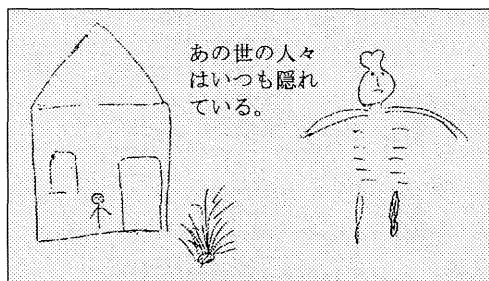 あの世の人々
はいつも隠れ
ている。